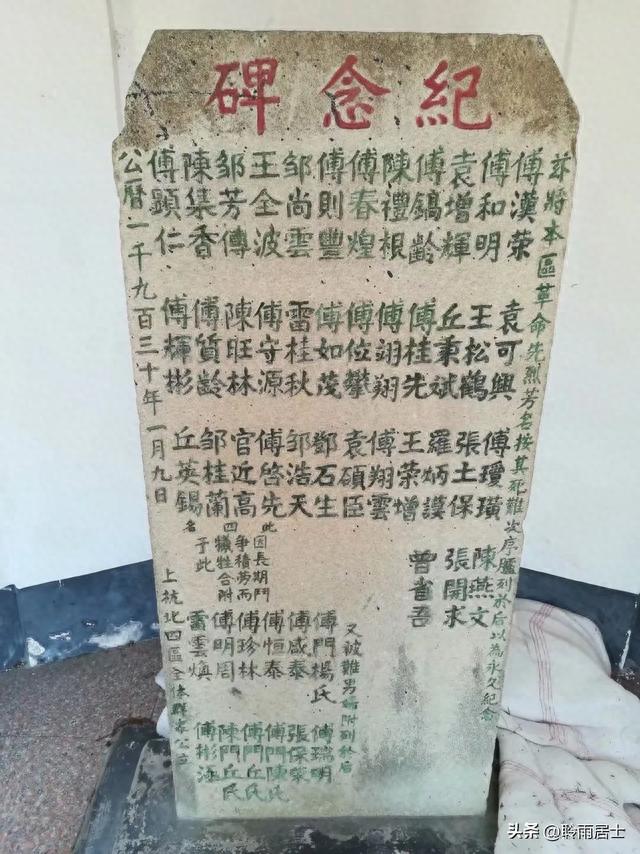 紀念碑
茲將本區革命先烈芳名按其死難次序臚列於后以為永久紀念
傅漢荣 袁可興 傅瑷璜 陳燕文
傅和明 王松鶴 張土保 張開求
袁增輝 丘秉斌 羅炳謨 曾省吾
傅鎬齡 傅桂先 王荣增
陳禮根 傅翊翔 傅翔雲
傅春煌 傅位攀 袁碩臣
傅則豐 傅如茂 鄧石生
邹尚雲 雷桂秋 邹浩天
王全波 傅守源 傅啓先
邹芳傳 陳旺林 官近高
陳集香 傅質龄 邹桂蘭
傅顯仁 傅輝彬 丘英錫
此因長期鬥
争積劳而
犧牲合附
于此
四名
又被難男婦附列於后
傅門楊氏 傅瑞明
傅咸泰 張保荣
傅恒泰 傅門陳氏
傅珍林 傅門丘氏
傅明周 陳門丘氏
雷雲煥 傅彬海
公曆一千九百三十年一月九日
上杭北四區全体群眾公立
头条 @聆雨居士